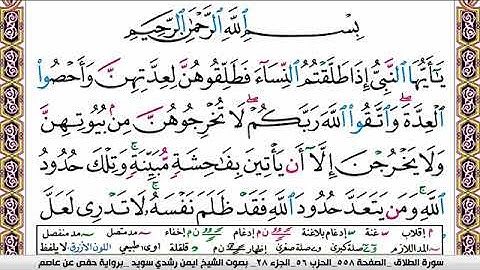 بِسْمِ ٱللَّهِ ٱلرَّحْمَٰنِ ٱلرَّحِيمِ
يَٰٓأَيُّهَا ٱلنَّبِيُّ إِذَا طَلَّقْتُمُ ٱلنِّسَآءَ فَطَلِّقُوهُنَّ لِعِدَّتِهِنَّ وَأَحْصُوا۟
ٱلْعِدَّةَ ۖ وَٱتَّقُوا۟ ٱللَّهَ رَبَّكُمْ ۖ لَا تُخْرِجُوهُنَّ مِنۢ بُيُوتِهِنَّ
وَلَا يَخْرُجْنَ إِلَّآ أَن يَأْتِينَ بِفَٰحِشَةٍ مُّبَيِّنَةٍ ۚ وَتِلْكَ حُدُودُ
ٱللَّهِ ۚ وَمَن يَتَعَدَّ حُدُودَ ٱللَّهِ فَقَدْ ظَلَمَ نَفْسَهُۥ ۚ لَا تَدْرِى لَعَلَّ
م إقلاب س غنة إدغام بلاغنة م ن إدغام م ن إخفاء ~ مد متصل ~ مد منفصل
~ المد اللازم صلة كبرى وصلة صغرى إظهار قلقلة اوى، طبيعي اللون الأزرق، لا يلفظ
سورة الطلاق _ الصفحة ٥٥٨_ الحزب ٥٦_ الجزء ٢٨_ بصوت الشيخ ايمن رشدي سويد _ برواية حفص عن عاصم